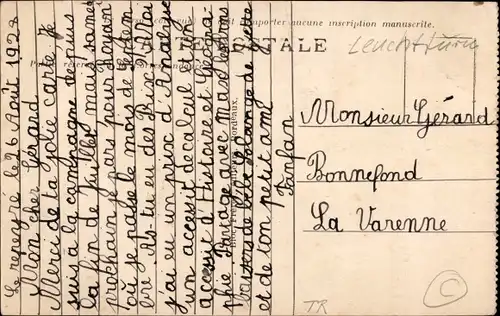 importer aucune inscription manuscrite.
TALE
Leuchtturm
Le 26 Août 1928
Mon cher Gérard
Merci de ta jolie carte. Je
suis à la campagne depuis
la fin de Juillet mais samedi
prochain je pars pour Rouen
où je passe le mois de Septem
bre As-tu eu des Prix. Moi
j'ai eu un prix d'Analyse
un accessit de calcul et un
accessit d'Histoire et Géogra
phie Partage avec
de ton petit ami
Fanfan
Bordeaux.
Monsieur Gérard
Bonnefond
La Varenne
TR
C